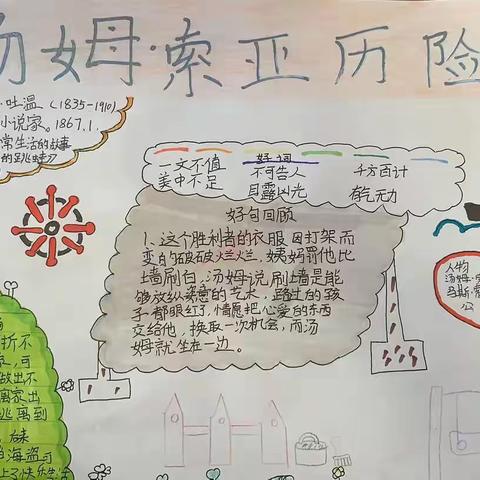 汤姆·索亚历险
·吐温（1835-1910）
小说家。1867.1.
常生活的故事
的跳蛙》
好词
一文不值 不可告人 千方百计
美中不足 目露凶光 有气无力
好句回顾
1、这个胜利者的衣服因打架而
变的破破烂烂，姨妈罚他比
墙刷白，汤姆说刷墙是能
够放纵 的艺术，路过的孩
子都眼红了，情愿把心爱的东西
交给他，换取一次机会，而汤
姆就坐在一边。
人物
汤姆·
马斯·
公
折不
，可
做出不
离家出
逃离到
，后来
海盗
上了快乐生活